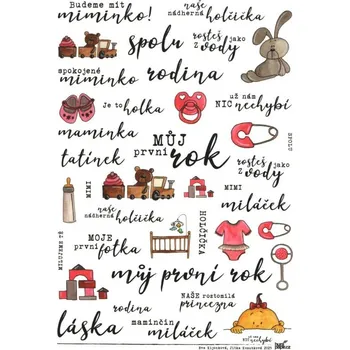 Budeme mít
miminko!
naše
nádherná holčička
spolu
rosteš jako
z vody
spokojené
miminko
rodina
Je to holka
už nám
NIC nechybí
maminka
MŮJ
první rok
SPOLU
tatínek
rosteš jako
z vody
MIMI
naše
nádherná holčička
MIMI
miláček
MILUJEME TĚ
MOJE
první fotka
HOLČIČKA
můj první rok
rodina
NAŠE roztomilá
princezna
láska
maminčin
miláček
nechybí